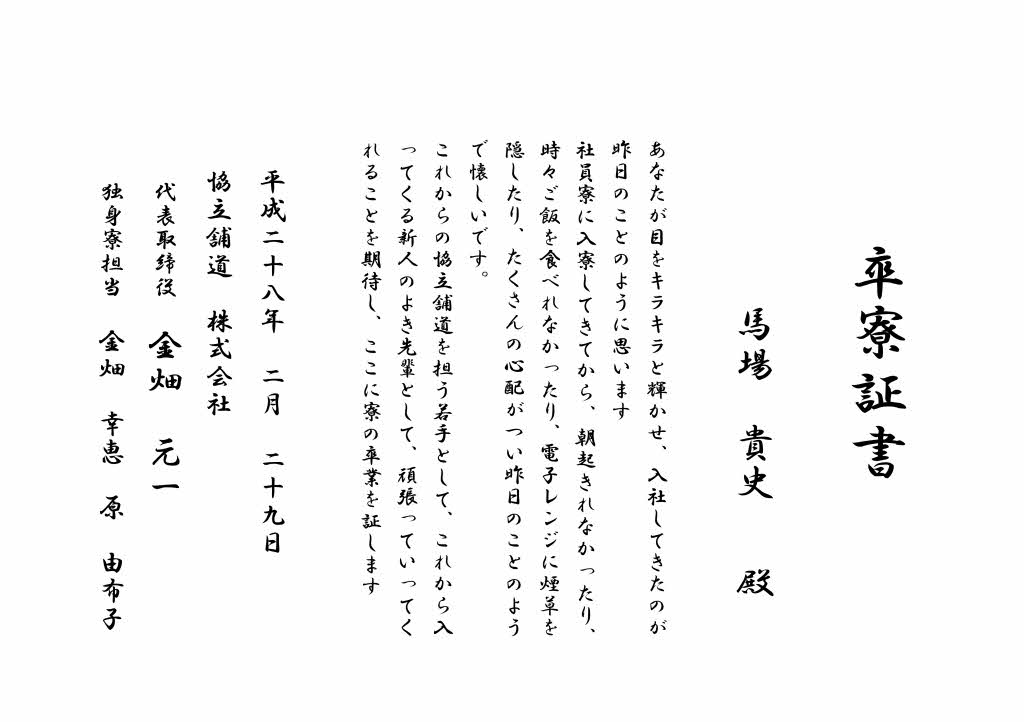 卒寮証書
馬場 貴史 殿
あなたが目をキラキラと輝かせ、入社してきたのが
昨日のことのように思います
社員寮に入寮してきてから、朝起きれなかったり、
時々ご飯を食べれなかったり、電子レンジに煙草を
隠したり、たくさんの心配がつい昨日のことのよう
で懐しいです。
これからの協立舗道を担う若手として、これから入
ってくる新人のよき先輩として、頑張っていってく
れることを期待し、ここに寮の卒業を証します
平成二十八年 二月 二十九日
協立舗道 株式会社
代表取締役 金畑 元一
独身寮担当 金畑 幸恵 原 由布子